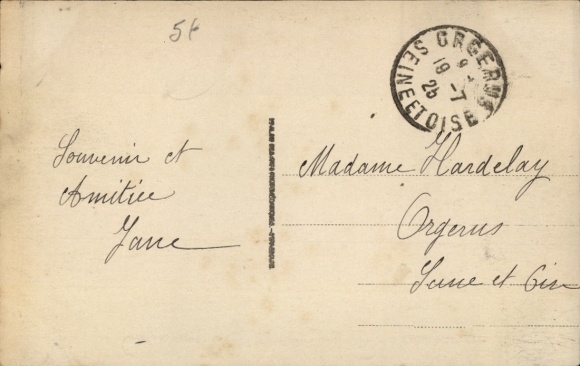 5f
ORGERUS
SEINE ET OISE
19 -7
25
Souvenir et
Amitiée
Jane
Madame Hardelay
Orgerus
Seine et Oise